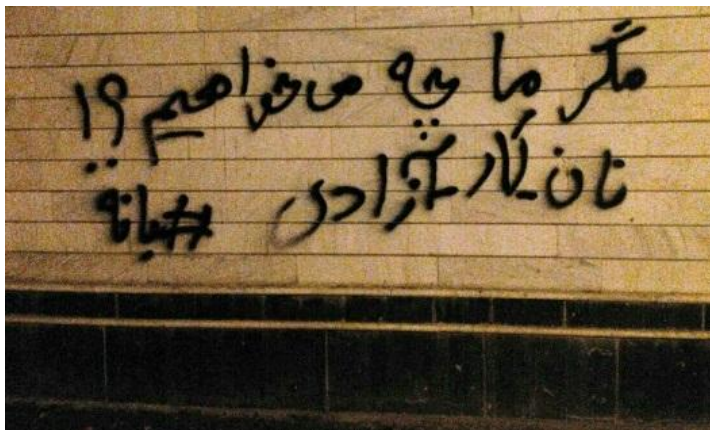 مگر ما چه می خواهیم؟!
نان کار آزادی #بانه